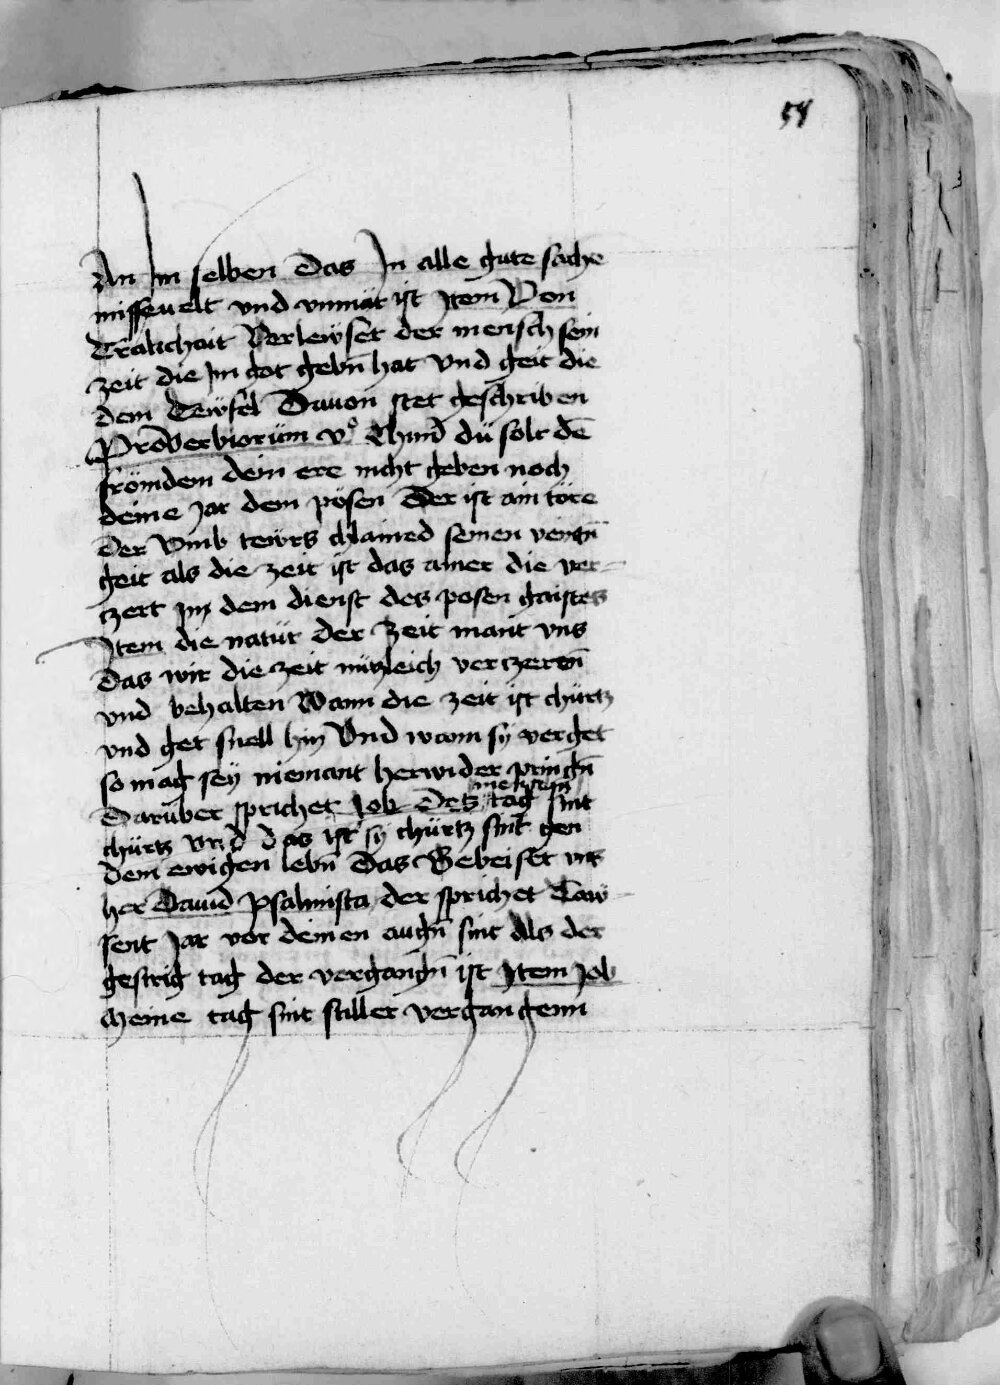 58
An Im selben Das In alle gute sache
misseuelt vnd vnmär ist Item Von
Träkchait Verlewset der mensch sein
zeit die Im got gebn̄ hat Vnd geit die
dem Tewfel Dauon stet geschriben
Prouerbiorum vº Chind dü solt dē
frömdem dein ere nicht geben noch
deine Jar dem pösen Der ist ain töre
Der Vmb tewrs chlained seinen veintn̄
geit als die zeit ist das ainer die ver-
zert Im dem dienst des posen gaistes
Item die natür der Zeit mant vns
Das wir die zeit nützleich verczern̄
vnd behalten Wann die zeit ist chürtz
vnd get snell hin Vnd wann sy verget
so mag sey niemant herwider pringn̄
Darüber sprichet Job Des menschn̄ tag sint
chürtz vnd das ist sy chürtz sint gen
dem ewigen lebn̄ Das Beweiset vns
her Dauid psalmista der sprichet Taw-
sent Jar vor deinen augn̄ sint Als der
gestrig tag der vergangn̄ ist Item Job
Meine tag sint stiller vergangenn